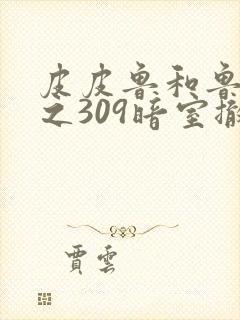 皮皮鲁和鲁
之309暗室撤
贾云